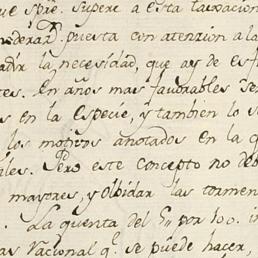 que Spre. Supere a esta tasacion
puesta con atenzion a la
la necesidad, que ay de es
tes. En años mas favorables se
s en la especie, y tambien lo s
los motivos anotados en la q
ales. Pero este concepto no deb
mayores, y olbidar las tormen
. La quenta del 5 p% por 100. in
as Nacional q.e se puede hacer,